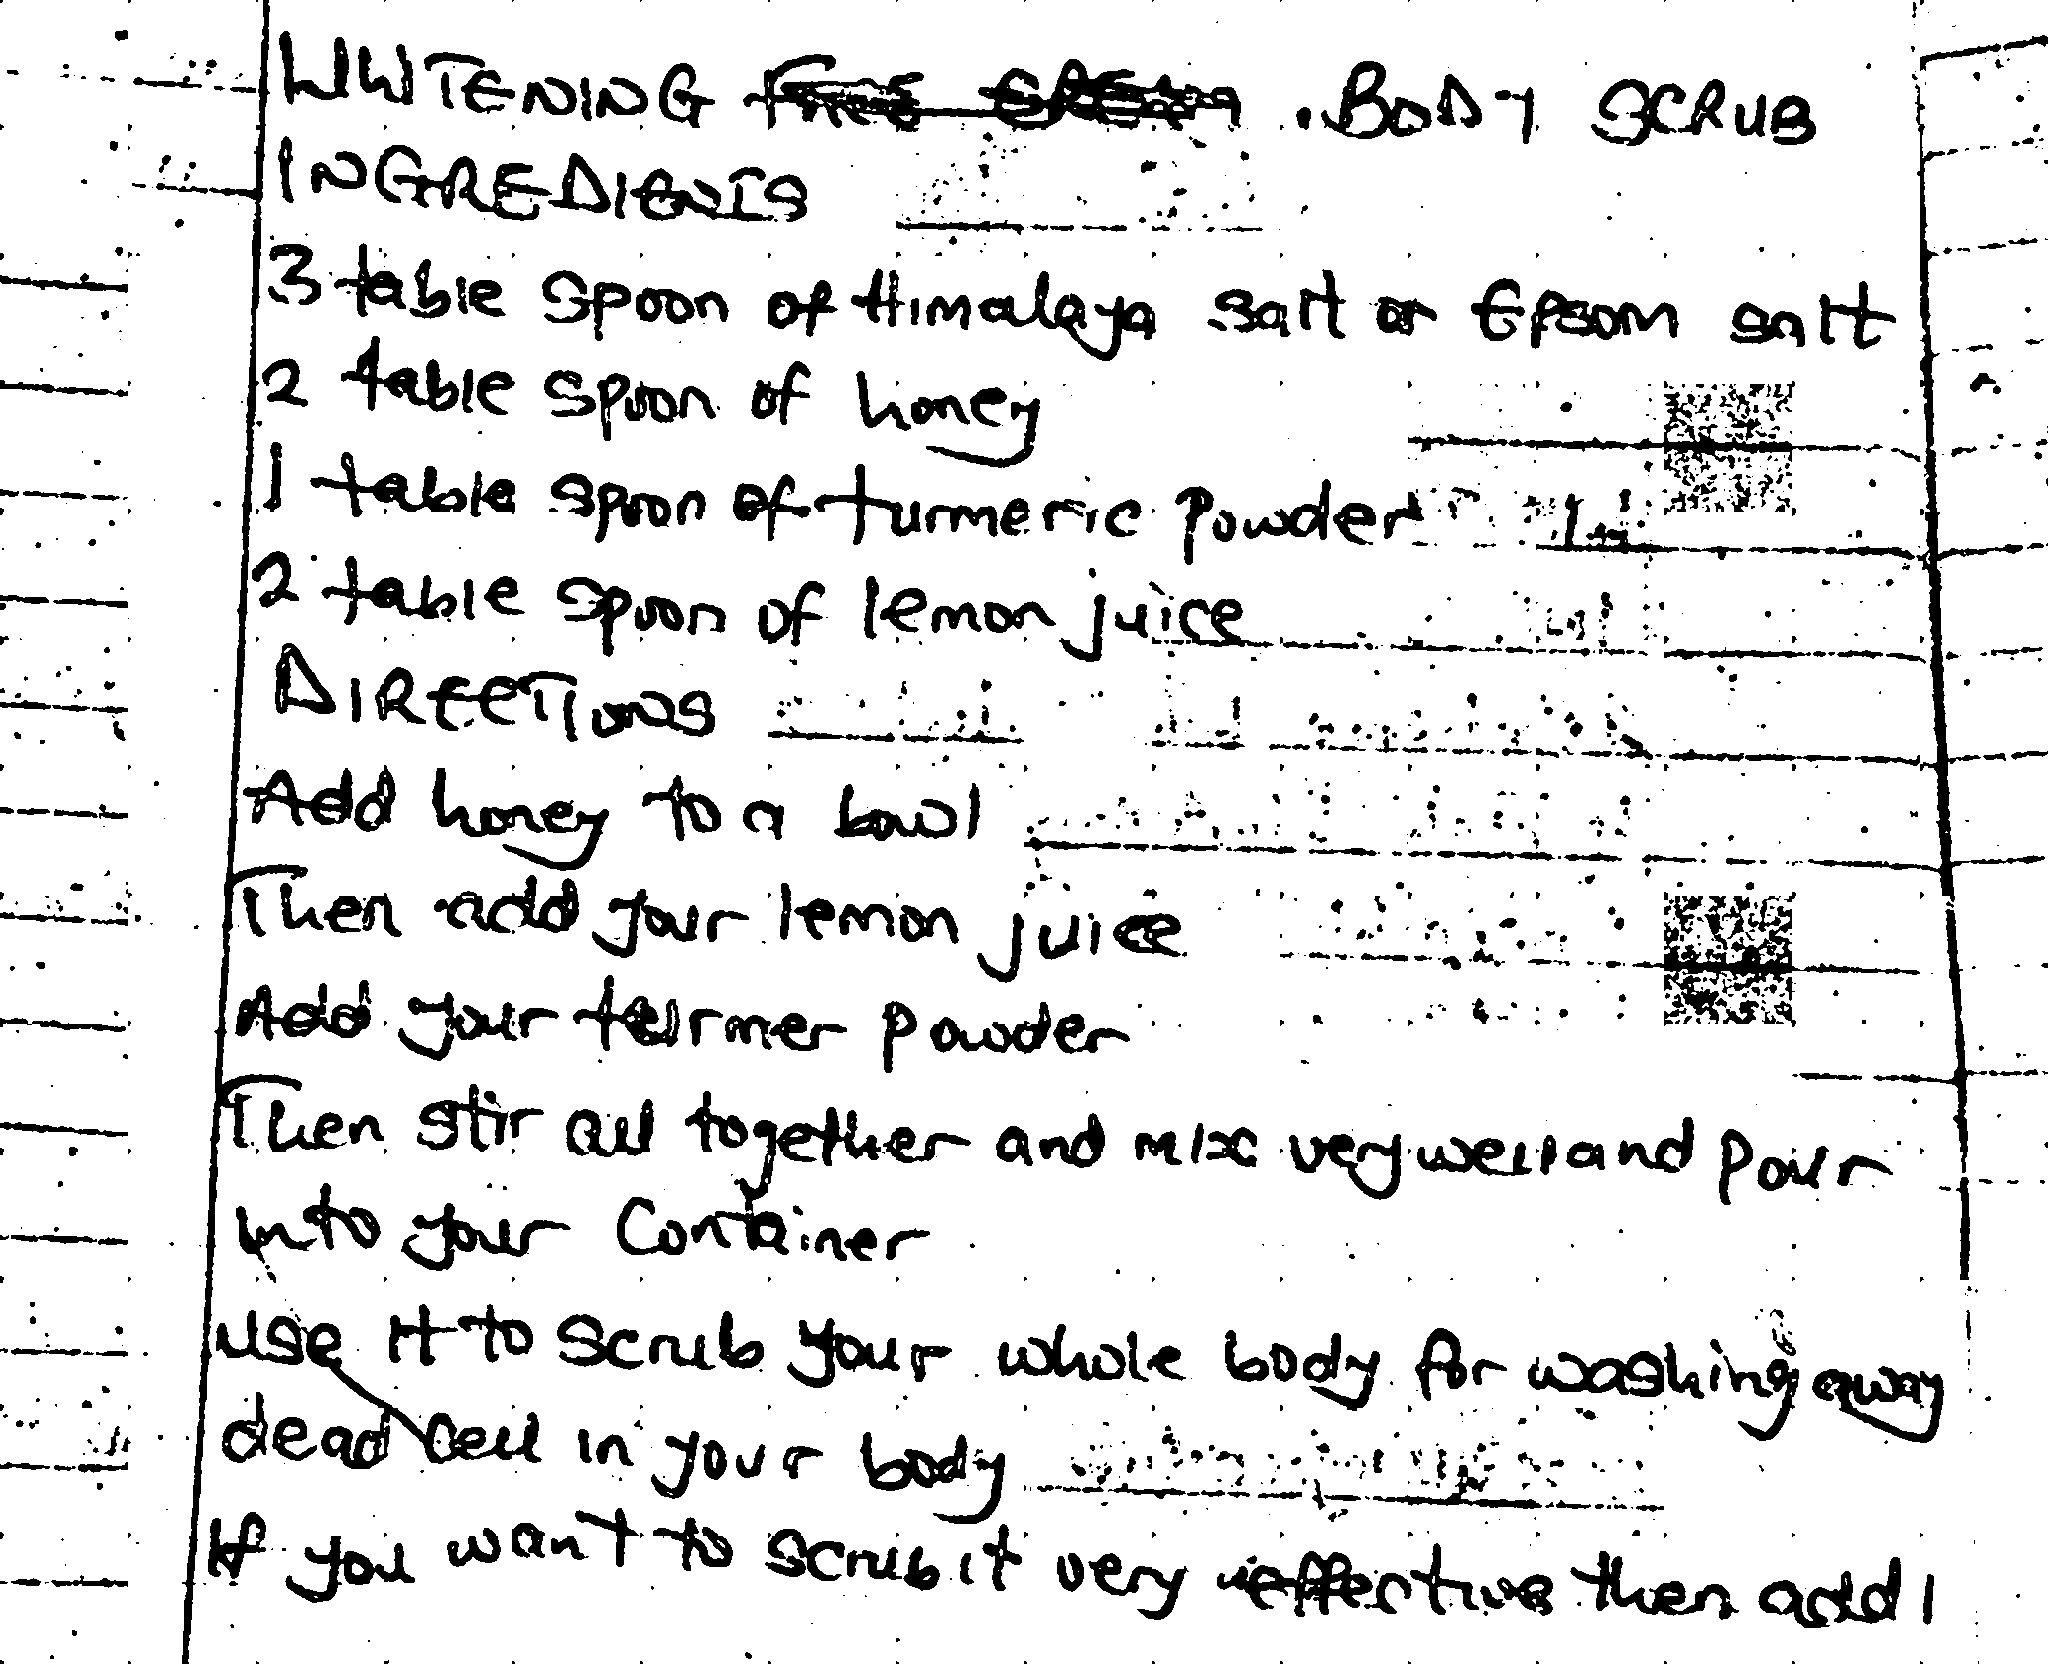 WHITENING BODY SCRUB
INGREDIENTS
3 table spoon of Himalaya salt or Epsom salt
2 table spoon of honey
1 table spoon of turmeric powder
2 table spoon of lemon juice
DIRECTIONS
Add honey to a bowl
Then add your lemon juice
Add your turmer powder
Then stir all together and mix very well and pour
into your container
use it to scrub your whole body for washing away
dead cell in your body
If you want to scrub it very effective then add 1